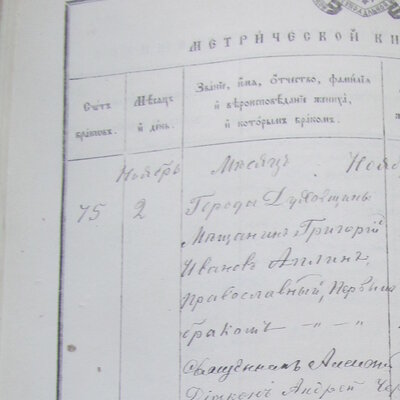 МЕТРИ́ЧЕСКОЙ КН
Счетъ
браковъ.
Мѣсяцъ
и день.
Званіе, имя, отчество, фамилія
и вѣроисповѣданіе жениха,
и которымъ бракомъ.
Ноябрь Мѣсяцъ Нояб
75 2 Города Духовщины
Мѣщанинъ Григорій
Ивановъ Аплин
православный, Первымъ
бракомъ — " — "
Священникъ Алексѣй
Діаконъ Андрей Чер